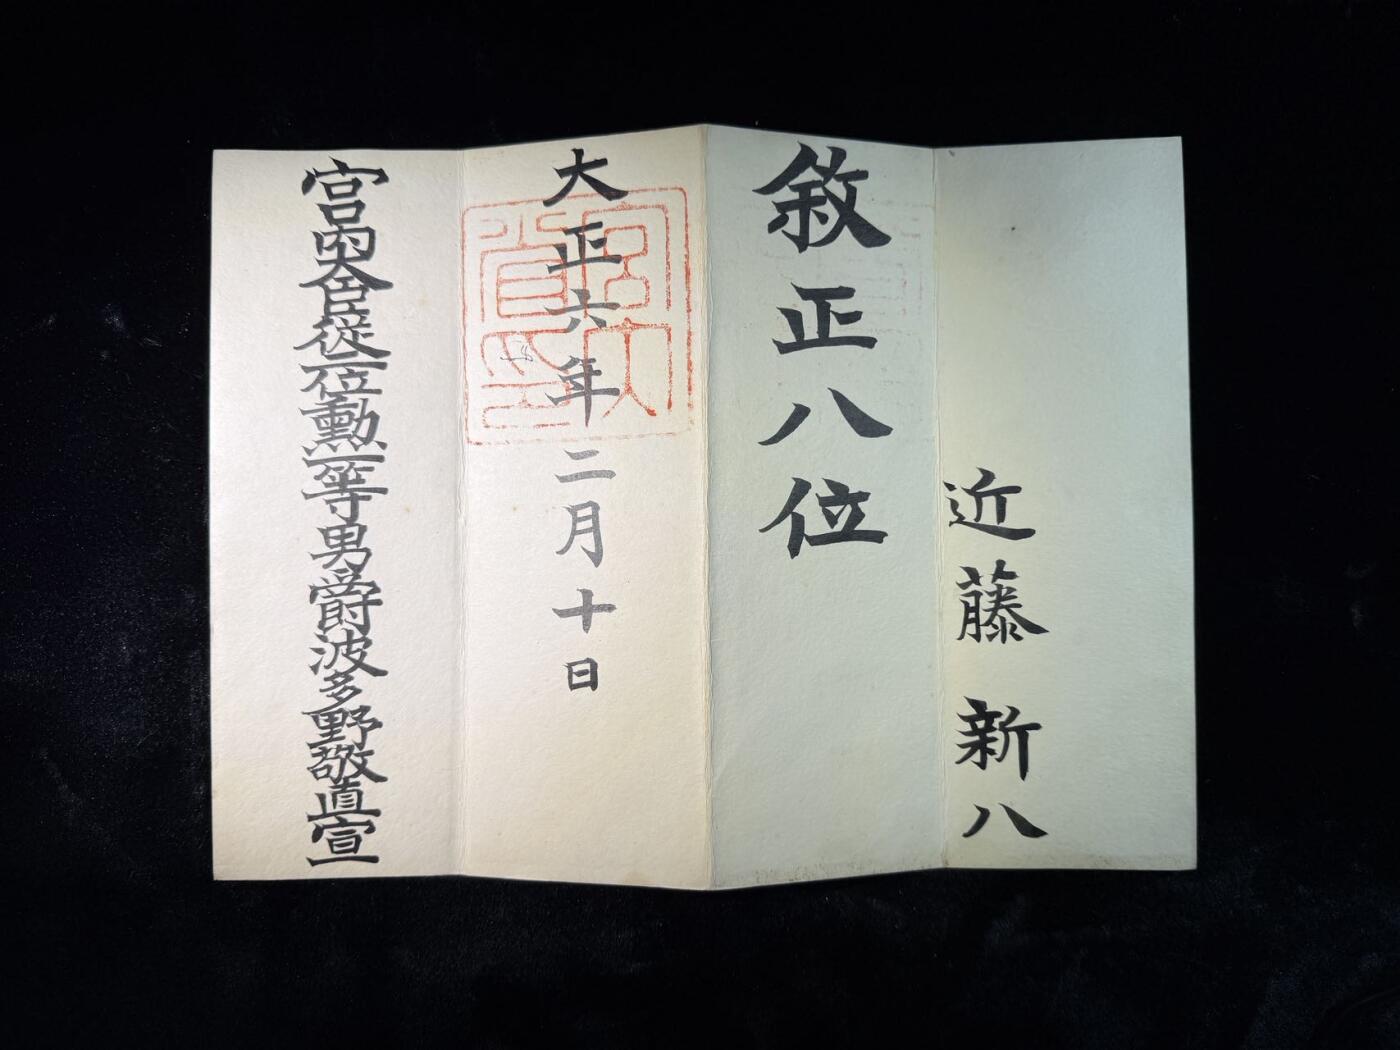 近藤新八
敘正八位
大正六年二月十日
宮内大臣従二位勲一等男爵波多野敬直宣
宮内
省印